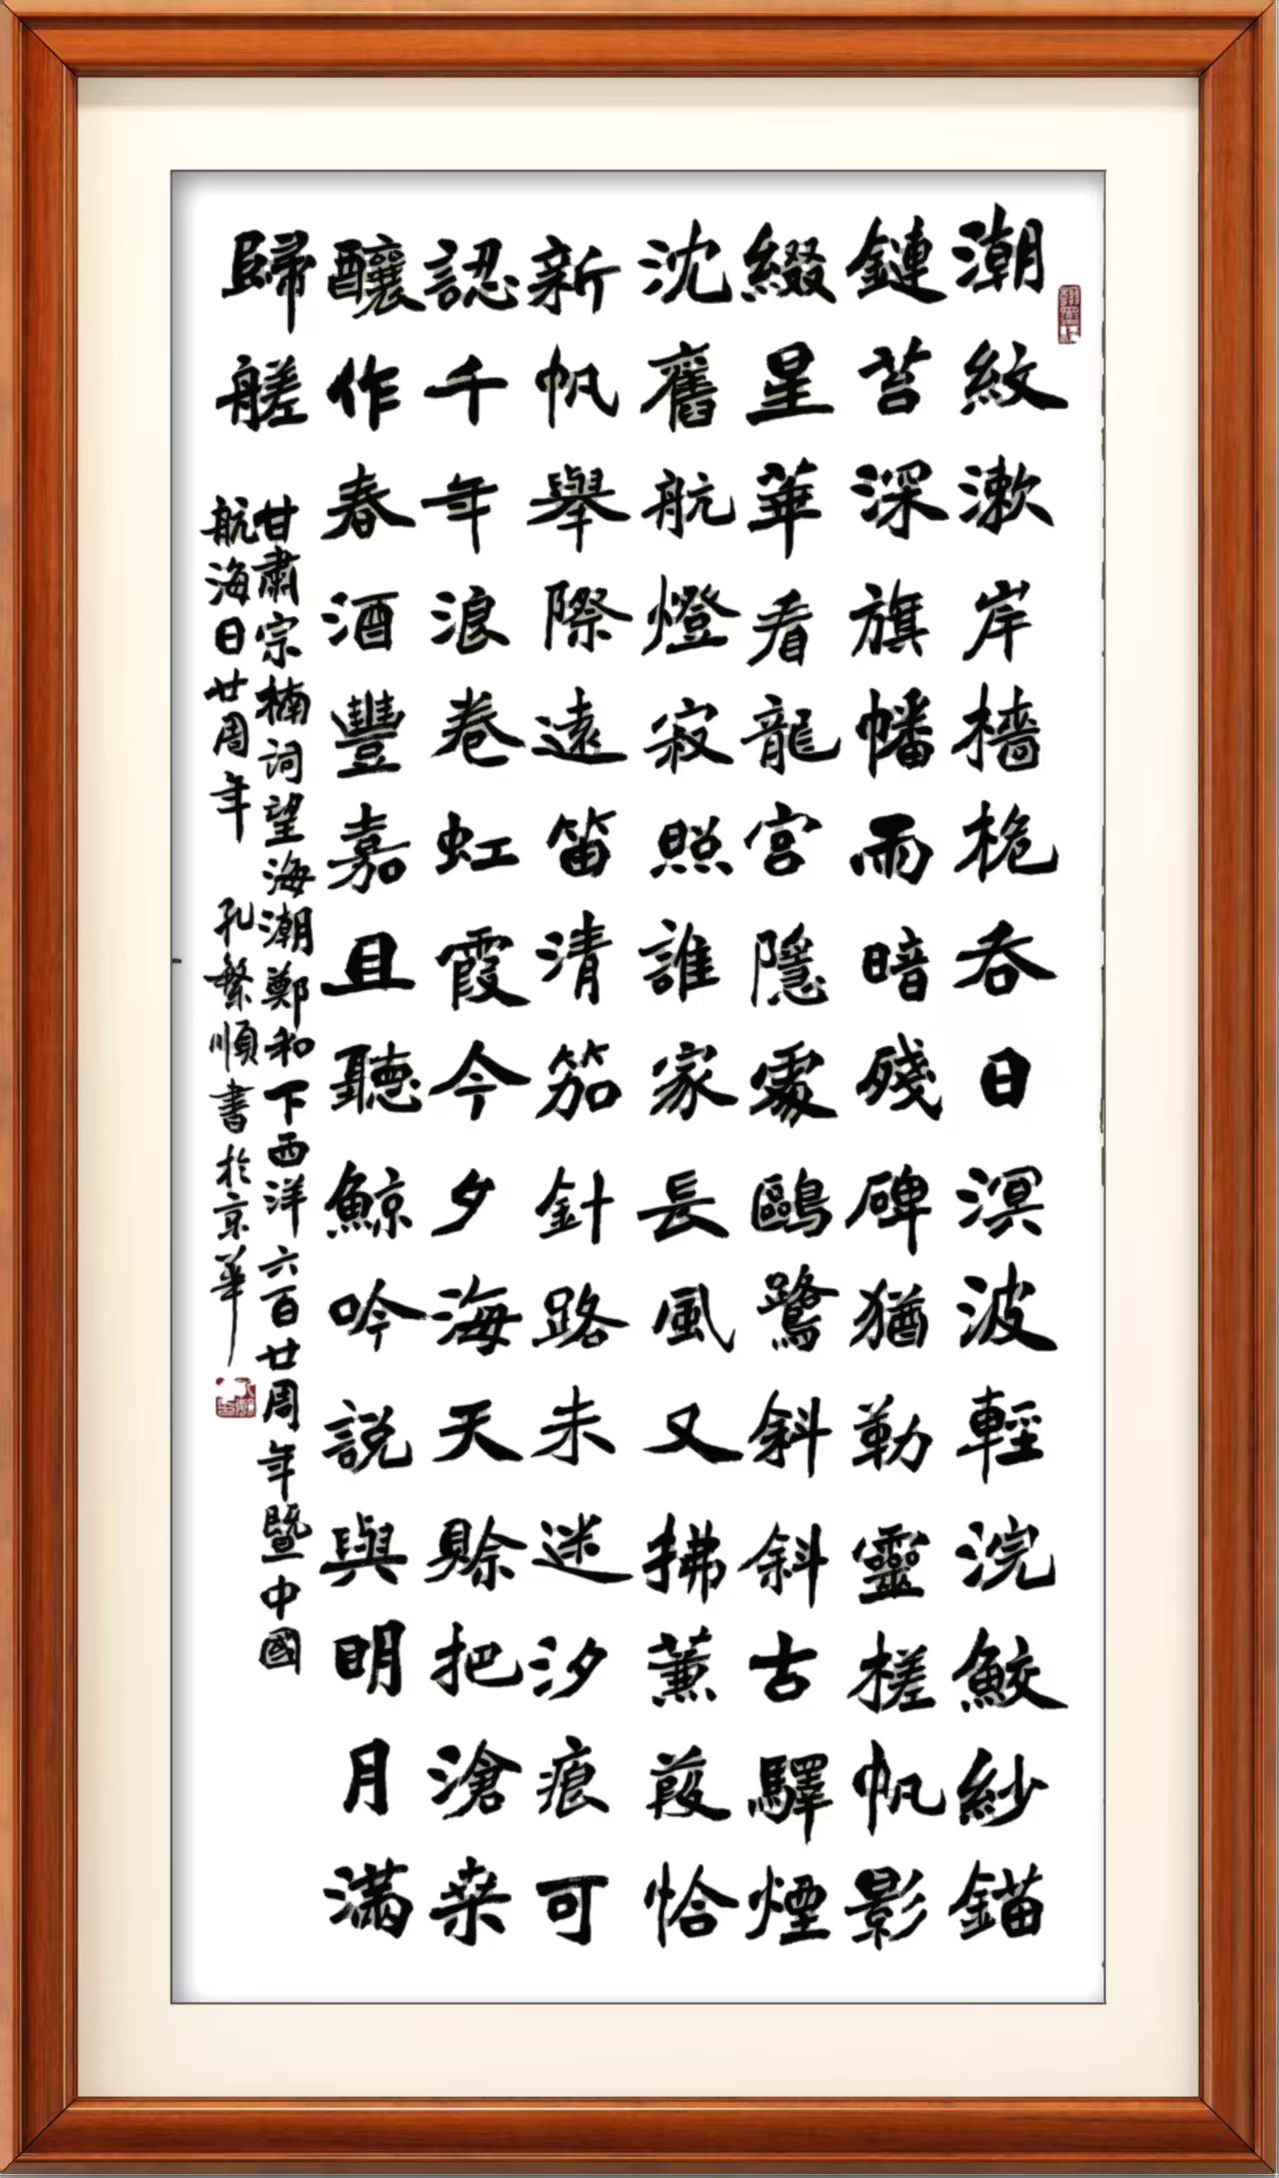 潮紋漱岸檣桅吞日溟波輕浣鮫紗錨
鏈苔深旗幡雨暗殘碑猶勒靈槎帆影
綴星華看龍宮隱處鷗鷺斜斜古驛煙
沈舊航燈寂照誰家長風又拂薰葭恰
新帆舉際遠笛清笳針路未迷汐痕可
認千年浪卷虹霞今夕海天賒把滄桑
釀作春酒豐嘉且聽鯨吟説與明月滿
歸艖
甘肅宗楠词望海潮鄭和下西洋六百廿周年暨中國
航海日廿周年 孔繁順書於京華